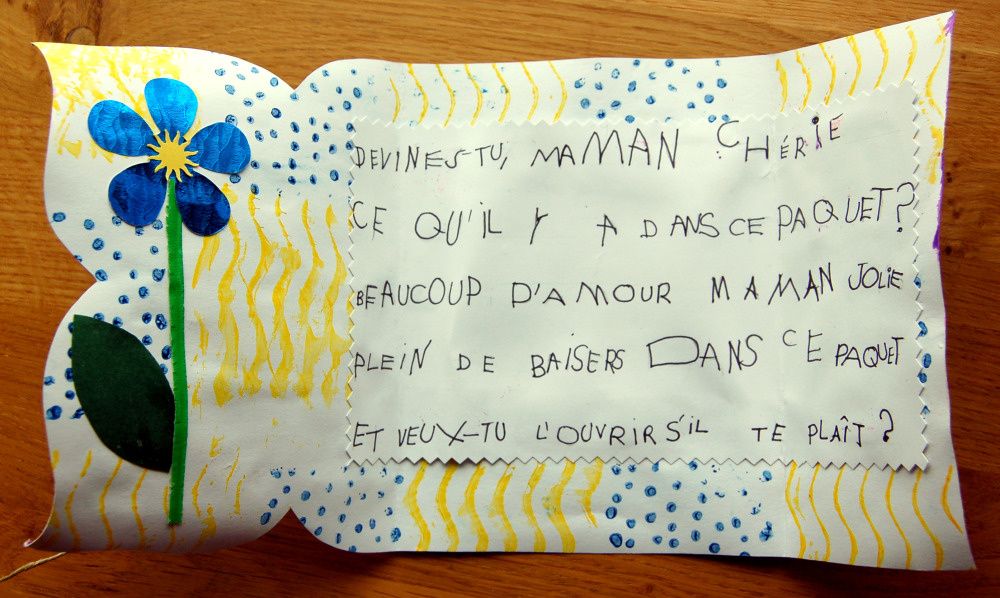 DEVINES-TU, MAMAN CHÉRIE
CE QU'IL Y A DANS CE PAQUET?
BEAUCOUP D'AMOUR MAMAN JOLIE
PLEIN DE BAISERS DANS CE PAQUET
ET VEUX-TU L'OUVRIR S'IL TE PLAÎT ?